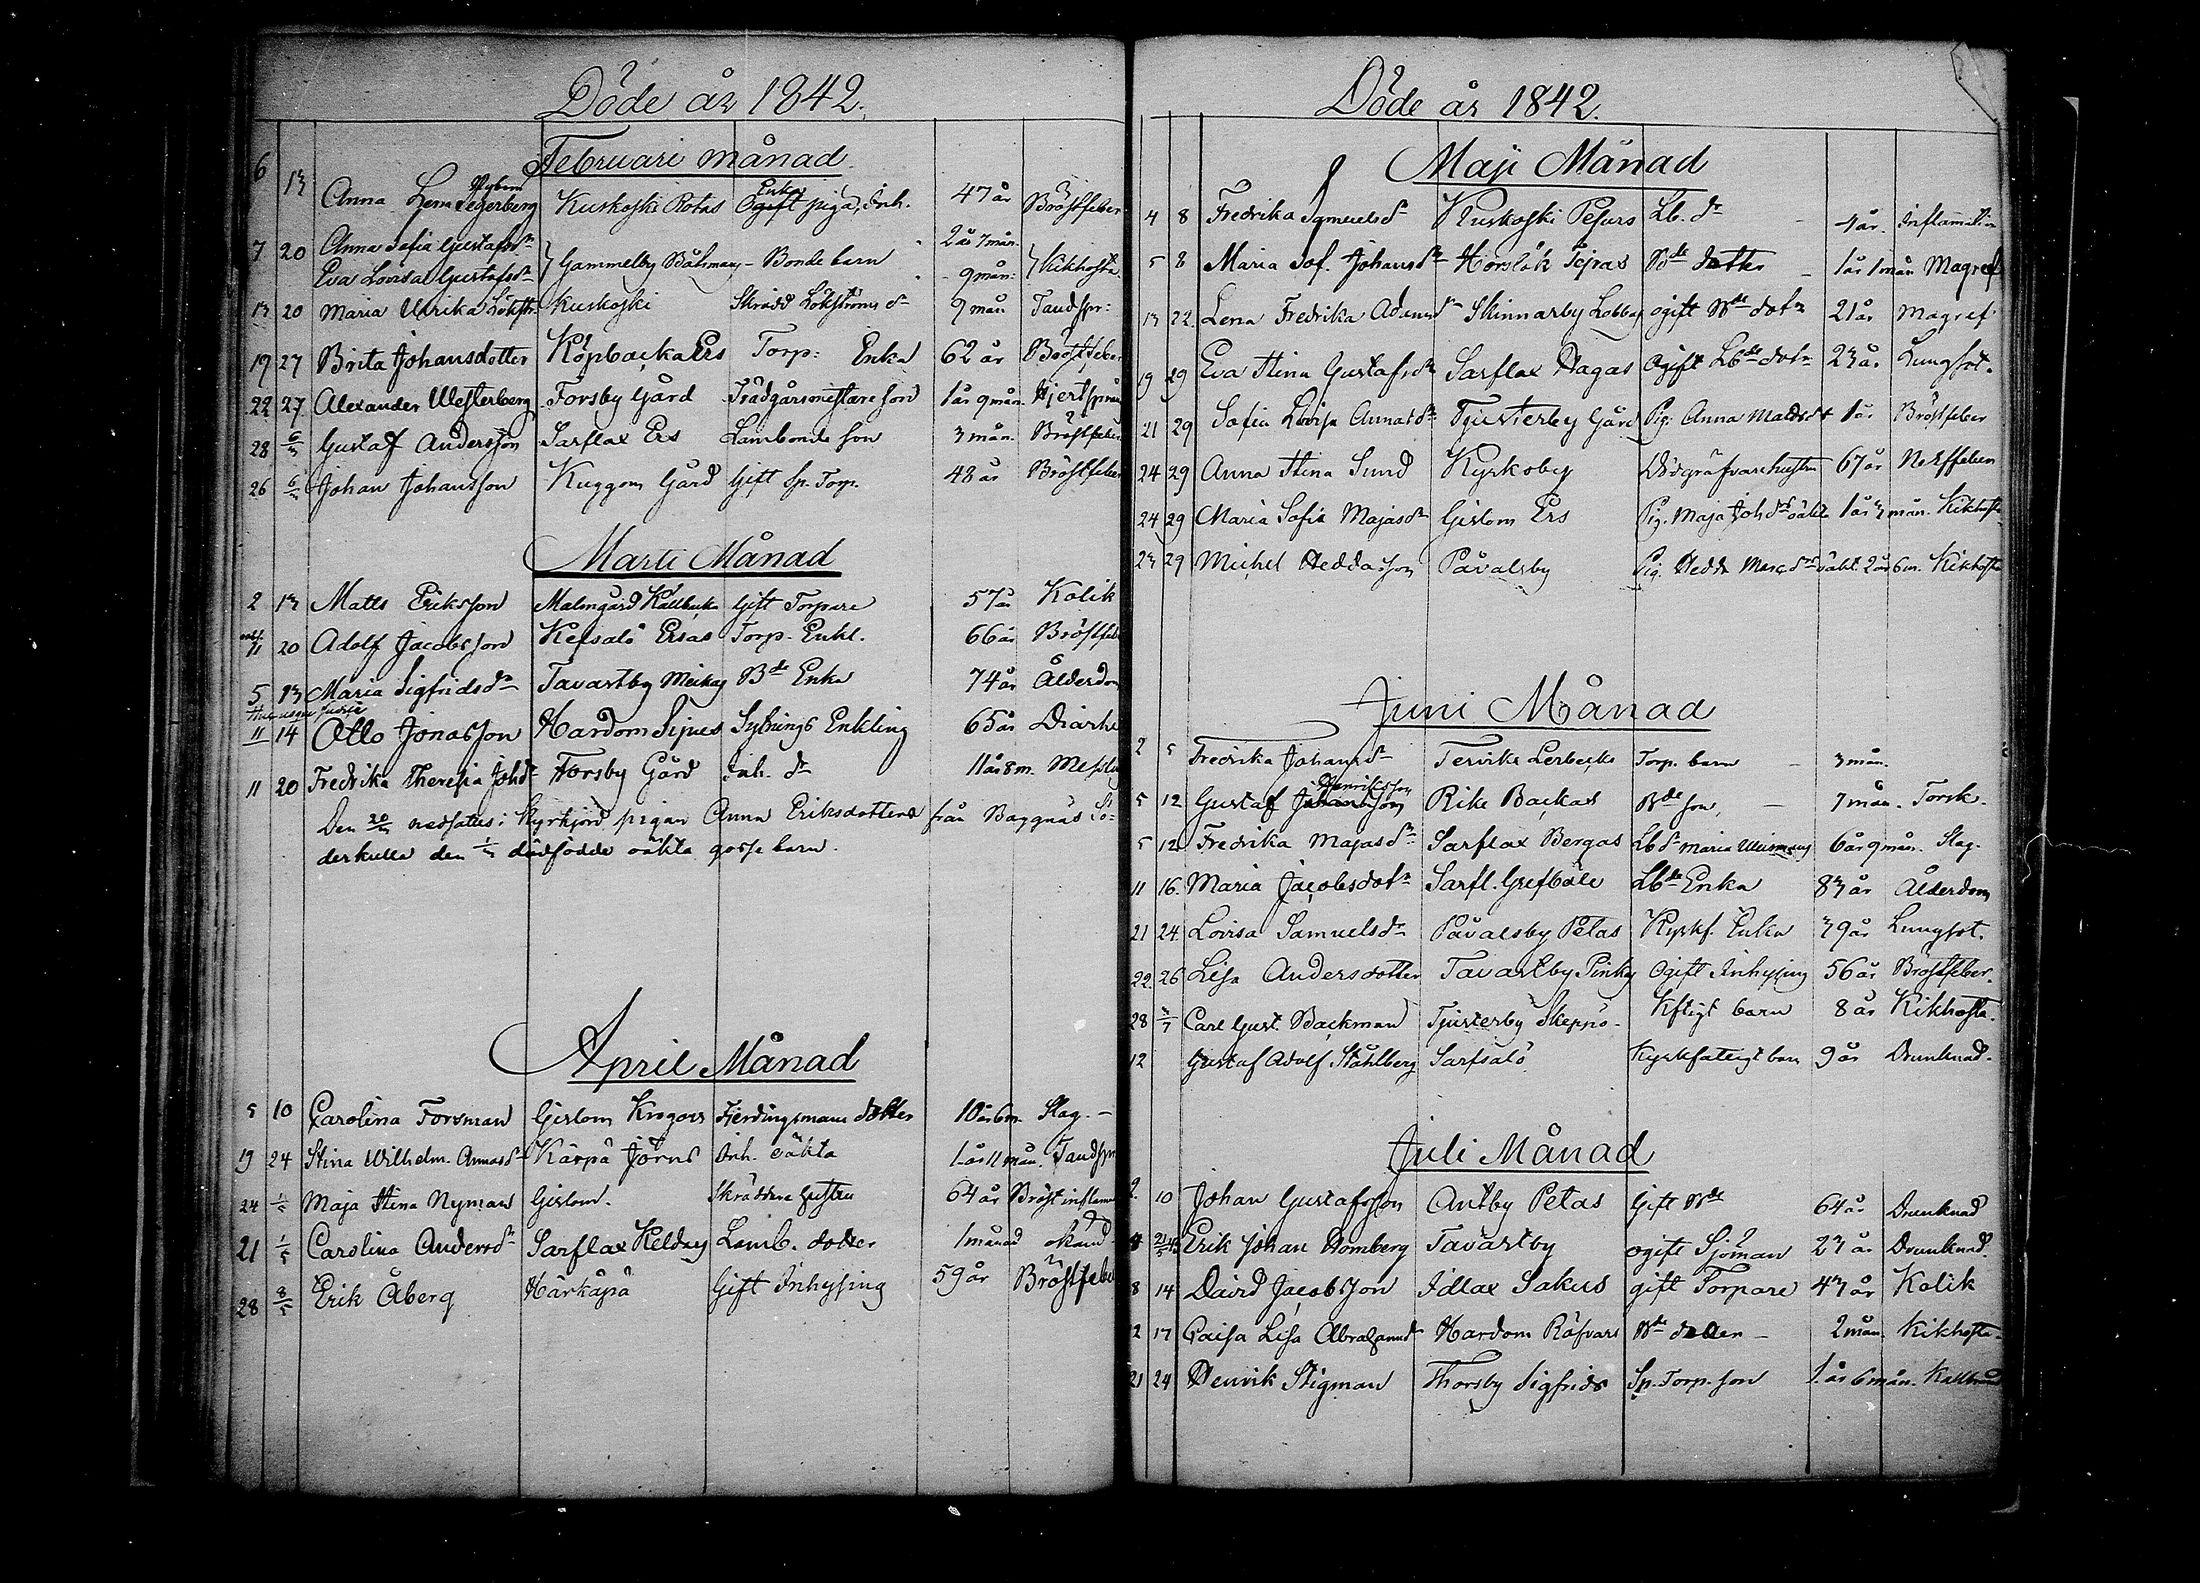 Döde år 1842.
Februari månad
6 13 Anna Lena Segerberg Kuskoski Rotas Ogift piga, Inh. Enka 47 år Bröstfeber
7 20 Anna Sofia Gustafsdr 2 år 7 mån
Eva Lovisa Gustafsdr Gammelby Båtsmans - Bonde barn - 9 mån: Kikhosta
13 20 Maria Ulrika Kuskoski Skrädd Lökströms dr 9 mån Tandspr:
19 27 Brita Johansdotter Köpbacka Ers Torp: Enka 62 år Bröstfeber
22 27 Alexander Westerberg Forsby Gård Trädgårsmestare son 1 år 9 mån
28 6/3 Gustaf Andersson Sarflax Ers Lambonde son 3 mån. Bröstfeber
26 6/3 Johan Johansson Kuggom Gård Gift Sp. Torp. 48 år Bröstfeber
Marti Månad
2 13 Matts Eriksson Malmgård Källbacka Gift Torpare 57 år Kolik
11 20 Adolf Jacobsson Keisalö Ersas Torp. Enkl. 66 år Bröstfeb
5 13 Maria Sigfridsdr Tavastby Meikas Bde Enka 74 år Ålderdom
11 14 Otto Jonasson Hardom Sipus Sytnings Enkling 65 år Diarhe
11 20 Fredrika Theresia Johdr Forsby Gård Inh. dr 11 år 8 m. Messling
Den 20/3 nedsattes i Kyrkjord pigan Anna Eriksdotters från Baggnäs Sö=
derkulla den 1/3 dödfödde oäkta gosse barn.
April Månad
5 10 Carolina Forsman Gislom Krogars Fjerdingsmans dotter 10 år 6 m. Slag. -
19 24 Stina Wilhelm. Annasdr Kärpä Jörns Inh. oäkta 1 år 11 mån. Tandspr
24 1/5 Maja Stina Nyman Gislom. Skräddare hustru 64 år Bröstinflam
21 1/5 Carolina Andersdr Sarflax Heldas Lamb. dotter 1 månad okänd
28 8/5 Erik Åberg Härkäpä Gift Inhysing 59 år Bröstfeber
Döde år 1842.
Maji Månad
4 8 Fredrika Samuelsdr Kuskoski Pesars Lb. dr - 4 år. Inflamation
5 8 Maria Sof. Johansdr Horslök Tejras Bde dotter - 1 år 1 mån Magref
13 22 Lena Fredrika Adamsdr Skinnarby Lobbas ogift Bde dotr 21 år Magref
19 29 Eva Stina Gustafsdr Sarflax Hagas Ogift Lbde dotr 23 år Lungsot.
21 29 Sofia Lovisa Annasdr Tjusterby Gård Pig. Anna Mattsdr 1 år Bröstfeber
24 29 Anna Stina Sund Kyrkoby Dödgräfvarehustru 67 år Nerffeber
24 29 Maria Sofia Majasdr Gislom Ers Pig. Maja Johdrs oäkta 1 år 3 mån. Kikhosta
23 29 Michel Heddasson Påvalsby Pig. Hedda oäkt. 2 år 6 m. Kikhosta
Juni Månad
2 5 Fredrika Johansdr Tervike Lerbacka Torp. barn - 3 mån.
Henriksson
5 12 Gustaf Johansson Rike Backas Bde son, - 7 mån. Torsk.
5 12 Fredrika Majasdr Sarflax Bergas Lbdr Maria 6 år 9 mån. Slag.
11 16. Maria Jacobsdotr Sarfl. Grefböle Lbde Enka 83 år Ålderdom
21 24. Lovisa Samuelsdr Påvalsby Petas Kyrkf. Enka 79 år Lungsot.
22 26 Lisa Andersdotter Tavastby Pinkas Ogift Inhysing 56 år Bröstfeber.
28 3/7 Carl Gust. Backman Tjusterby Skeppö. Kftigt barn 8 år Kikhosta.
12 Gustaf Adolf Ståhlberg Sarfsalö Kyrkfatigt barn 9 år Drunknad.
Juli Månad
2 10 Johan Gustafsson Antby Petas Gift Bde 64 år Drunknad
Erik Johan Homberg Tavastby ogift Sjöman 23 år Drunknad.
8 14 David Jacobsson Idlax Sakus gift Torpare 43 år Kolik
12 17 Caisa Lisa Abrahamsdr Hardom Räfvars Bde dotter - 2 mån. Kikhosta.
21 24 Henrik Stigman Thorsby Sigfrids Sp. Torp. son 1 år 6 mån. Kallbrand